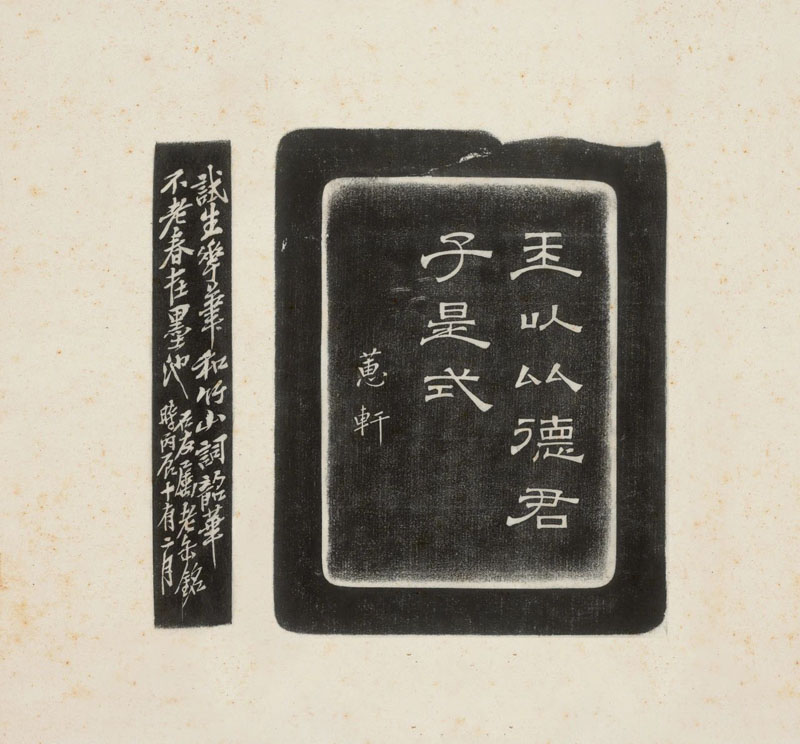 玉以比德君
子是式
蕙軒
試生華筆和竹山詞韶華
不老春在墨池
石友屬老缶銘
時丙辰十有二月